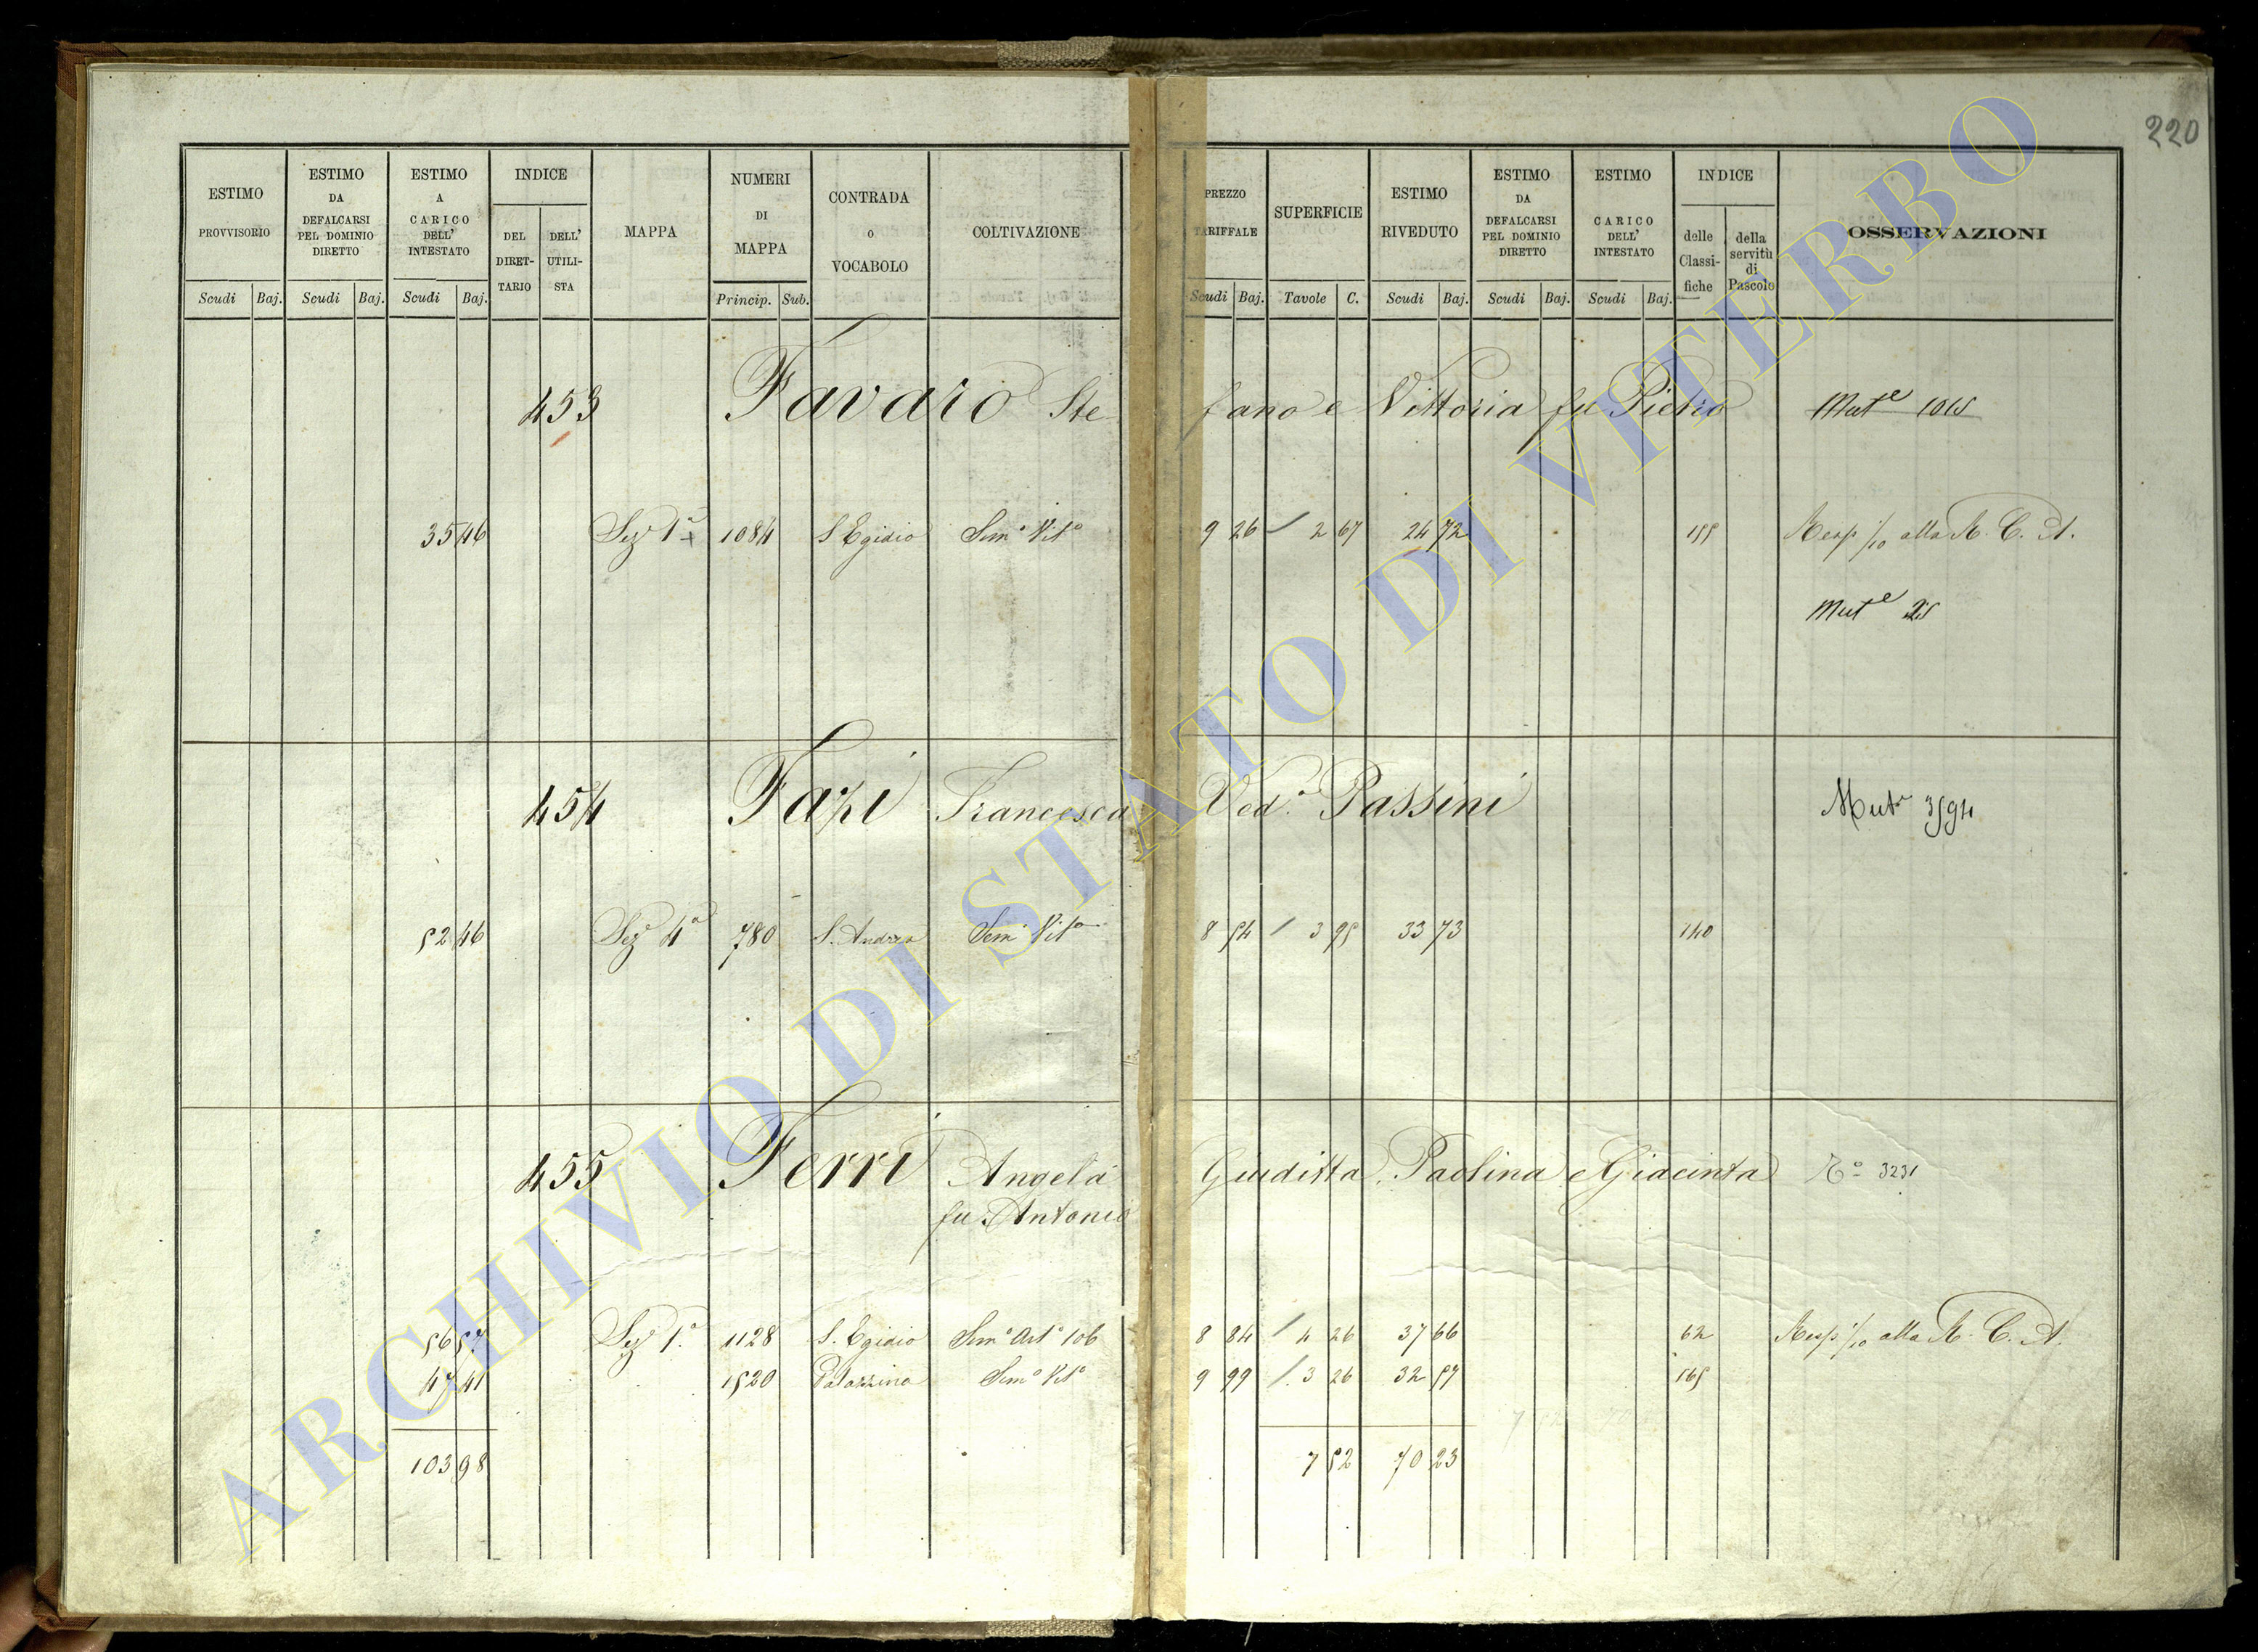 220
ESTIMO PROVVISORIO
ESTIMO DA DEFALCARSI PEL DOMINIO DIRETTO
ESTIMO A CARICO DELL' INTESTATO
INDICE
DEL DIRET-TARIO
DELL' UTILI-STA
MAPPA
NUMERI DI MAPPA
CONTRADA O VOCABOLO
COLTIVAZIONE
PREZZO TARIFFALE
SUPERFICIE
ESTIMO RIVEDUTO
ESTIMO DA DEFALCARSI PEL DOMINIO DIRETTO
ESTIMO CARICO DELL' INTESTATO
INDICE
delle Classi-fiche
della servitù di Pascolo
OSSERVAZIONI
Scudi Baj. Scudi Baj. Scudi Baj. Princip. Sub. Scudi Baj. Tavole C. Scudi Baj. Scudi Baj. Scudi Baj.
453 Favaro Stefano e Vittoria fu Pietro Mut.e 1015
35 46 Sez.e 1.a 1084 S. Egidio Sem.o Vit.o 9 26 2 67 24 72 155 Resp. 1/10 alla R. C. A.
Mut.e 25
454 Fazi Francesca Ved.a Passini Mut. 3594
52 46 Sez.e 4.a 780 S. Andrea Sem.o Vit.o 8 54 3 95 33 73 140
455 Ferri Angela Giuditta, Paolina e Giacinta N.o 3231
fu Antonio
56 57 Sez.e 1.a 1128 S. Egidio Sem.o Art.o 106 8 84 4 26 37 66 62 Resp. 1/10 alla R. C. A.
47 41 1520 Palazzina Sem.o Vit.o 9 99 3 26 32 57 165
103 98 7 52 70 23
ARCHIVIO DI STATO DI VITERBO